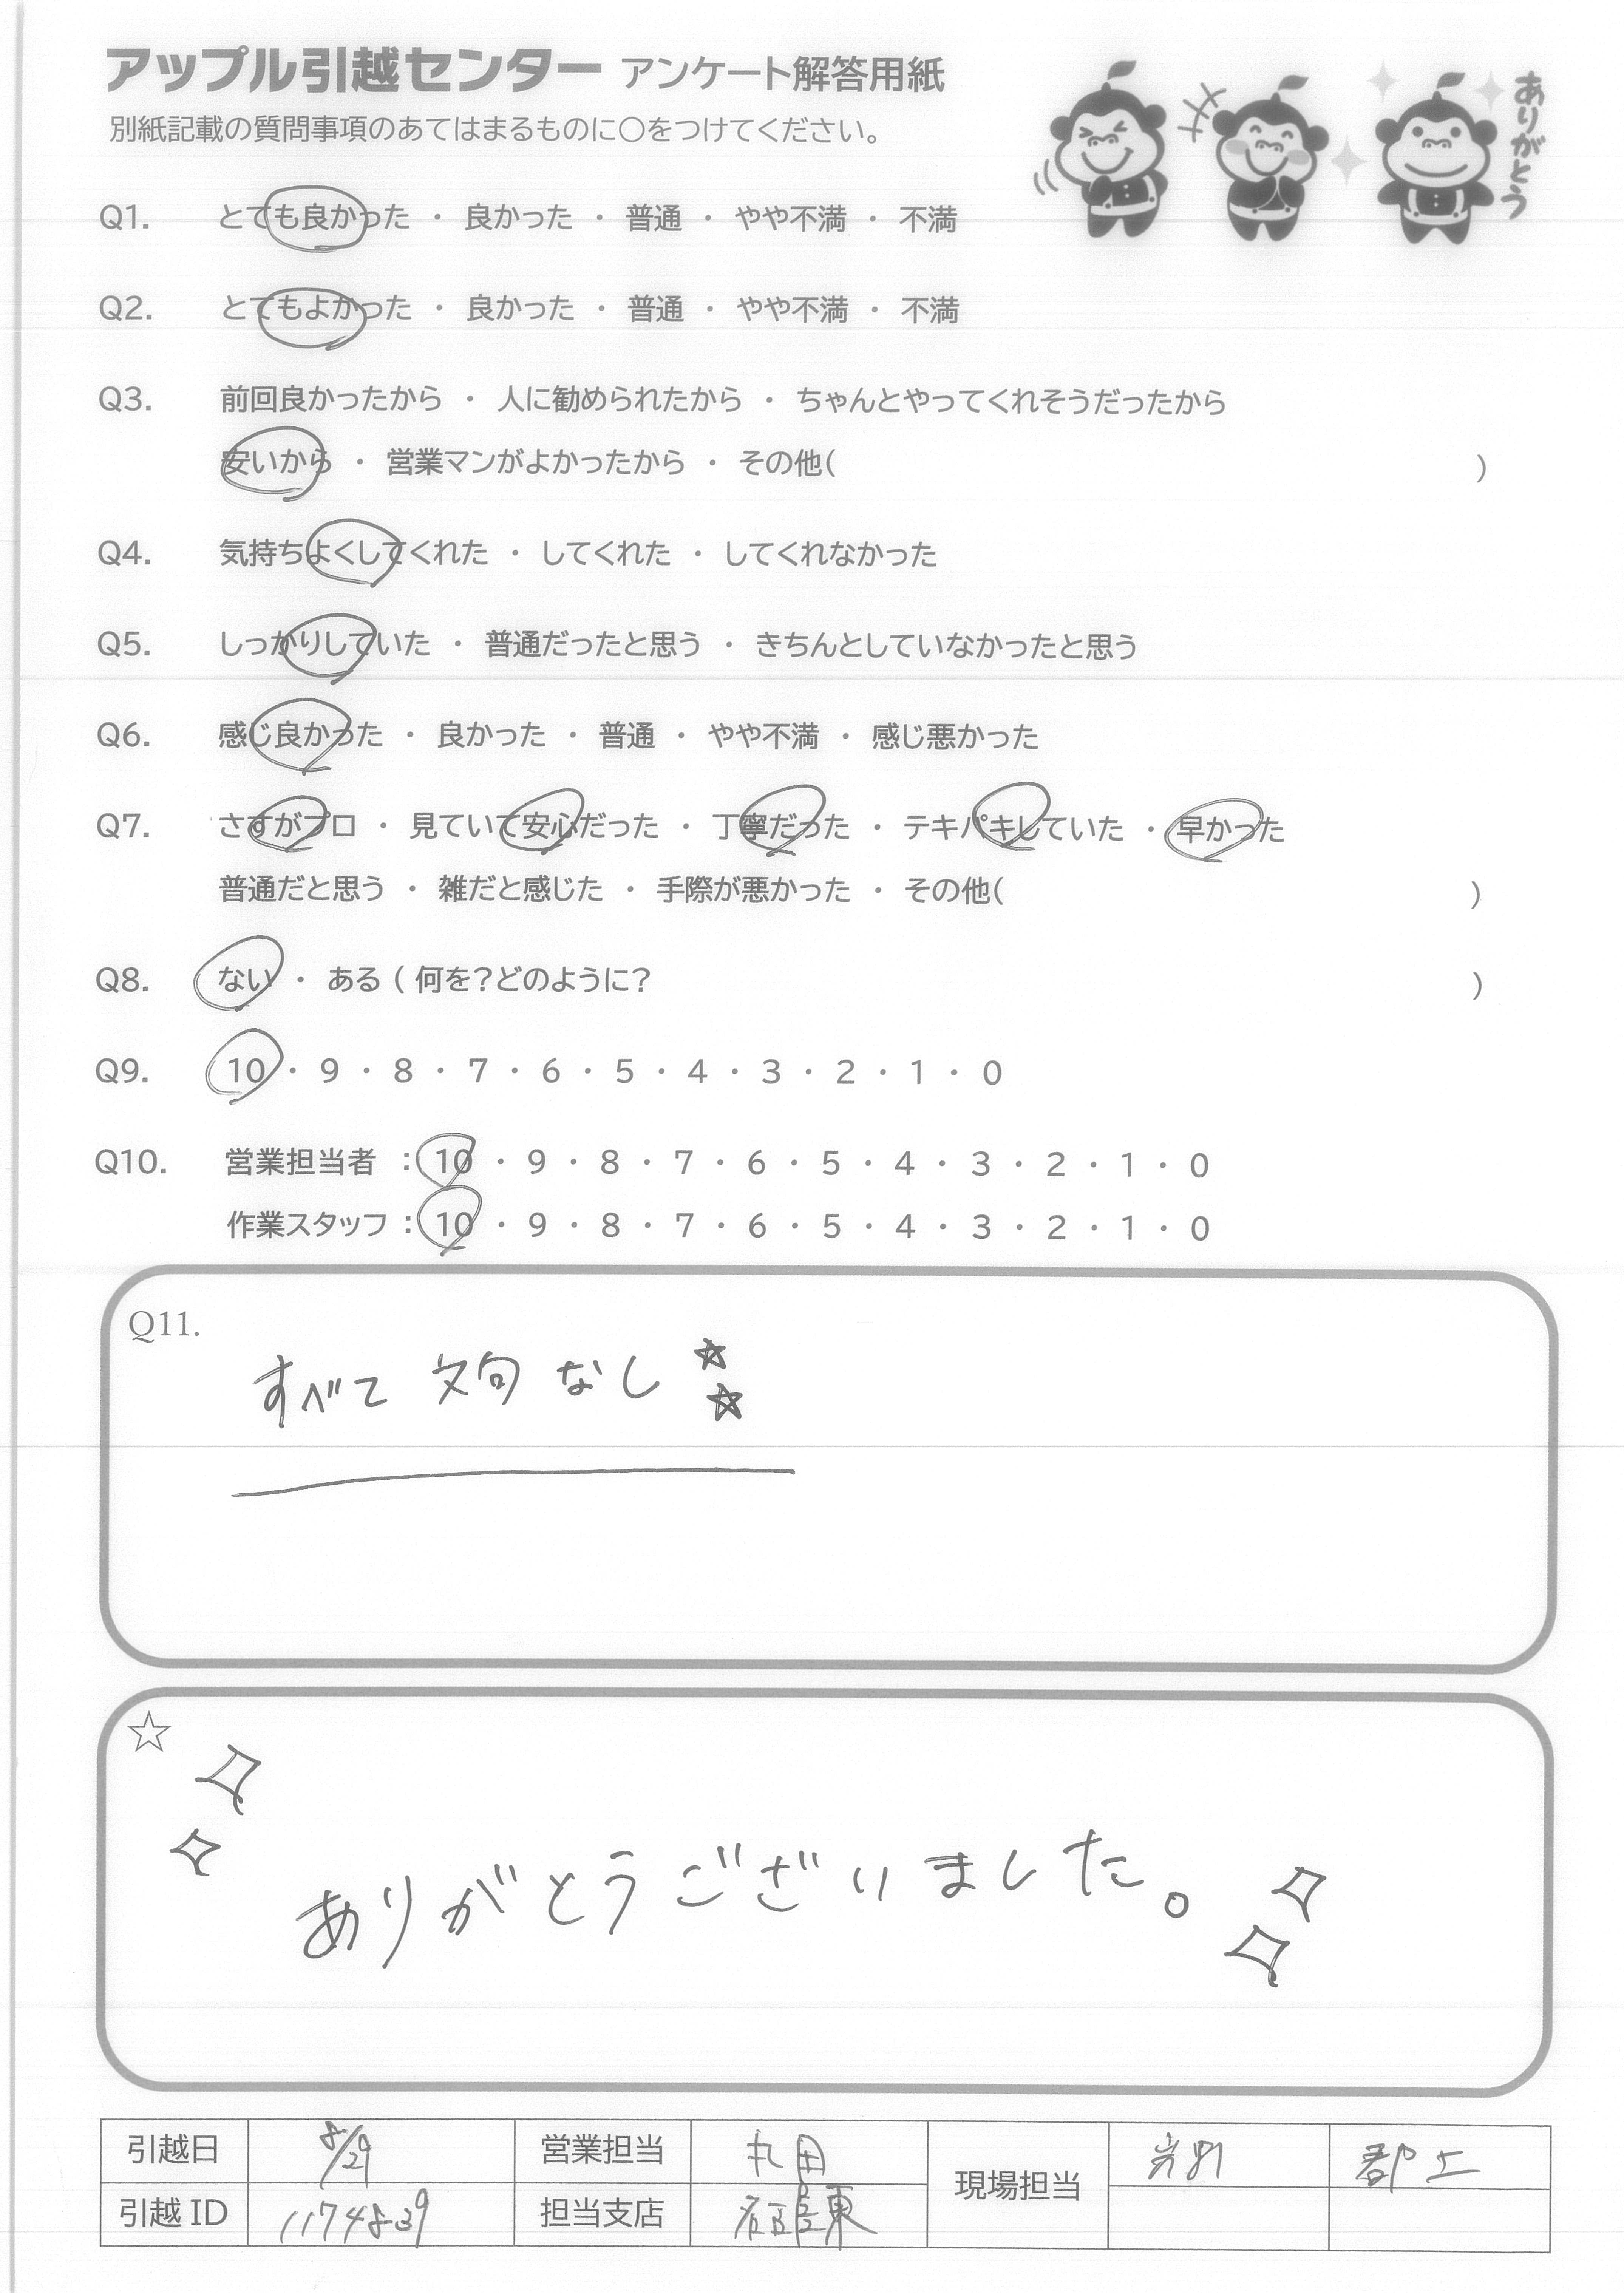 アップル引越センター アンケート解答用紙
別紙記載の質問事項のあてはまるものに○をつけてください。
ありがとう
Q1. とても良かった ・ 良かった ・ 普通 ・ やや不満 ・ 不満
Q2. とてもよかった ・ 良かった ・ 普通 ・ やや不満 ・ 不満
Q3. 前回良かったから ・ 人に勧められたから ・ ちゃんとやってくれそうだったから
安いから ・ 営業マンがよかったから ・ その他( )
Q4. 気持ちよくしてくれた ・ してくれた ・ してくれなかった
Q5. しっかりしていた ・ 普通だったと思う ・ きちんとしていなかったと思う
Q6. 感じ良かった ・ 良かった ・ 普通 ・ やや不満 ・ 感じ悪かった
Q7. さすがプロ ・ 見ていて安心だった ・ 丁寧だった ・ テキパキしていた ・ 早かった
普通だと思う ・ 雑だと感じた ・ 手際が悪かった ・ その他( )
Q8. ない ・ ある ( 何を?どのように? )
Q9. 10 ・ 9 ・ 8 ・ 7 ・ 6 ・ 5 ・ 4 ・ 3 ・ 2 ・ 1 ・ 0
Q10. 営業担当者 : 10 ・ 9 ・ 8 ・ 7 ・ 6 ・ 5 ・ 4 ・ 3 ・ 2 ・ 1 ・ 0
作業スタッフ : 10 ・ 9 ・ 8 ・ 7 ・ 6 ・ 5 ・ 4 ・ 3 ・ 2 ・ 1 ・ 0
Q11.
すべて 文句 なし ☆☆
☆
ありがとうございました。
引越日 8/29 営業担当 丸田 現場担当 郡上
引越 ID 1174839 担当支店